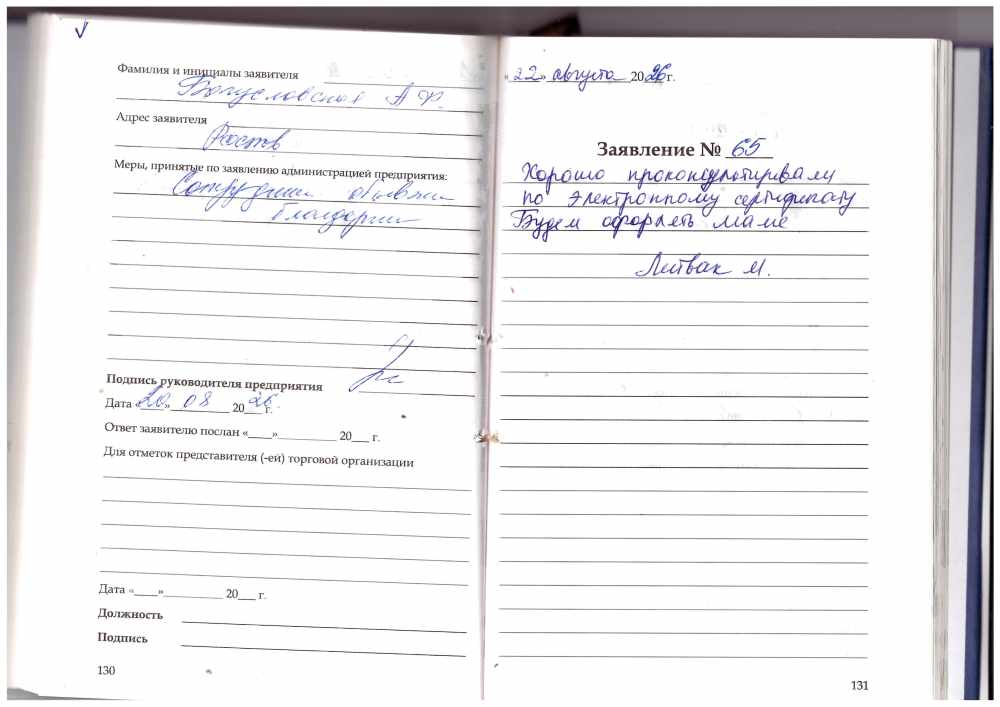 Фамилия и инициалы заявителя
Богуславская А Ф.
Адрес заявителя
Ростов
Меры, принятые по заявлению администрацией предприятия:
Сотруднику объявлена
благодарность
Подпись руководителя предприятия
Дата «20» 08 2026 г.
Ответ заявителю послан «____»__________ 20___ г.
Для отметок представителя (-ей) торговой организации
Дата «____»__________ 20___ г.
Должность
Подпись
130
«22» августа 2026 г.
Заявление № 65
Хорошо проконсультировали
по электронному сертификату
Будем оформлять маме
Литвак М.
131